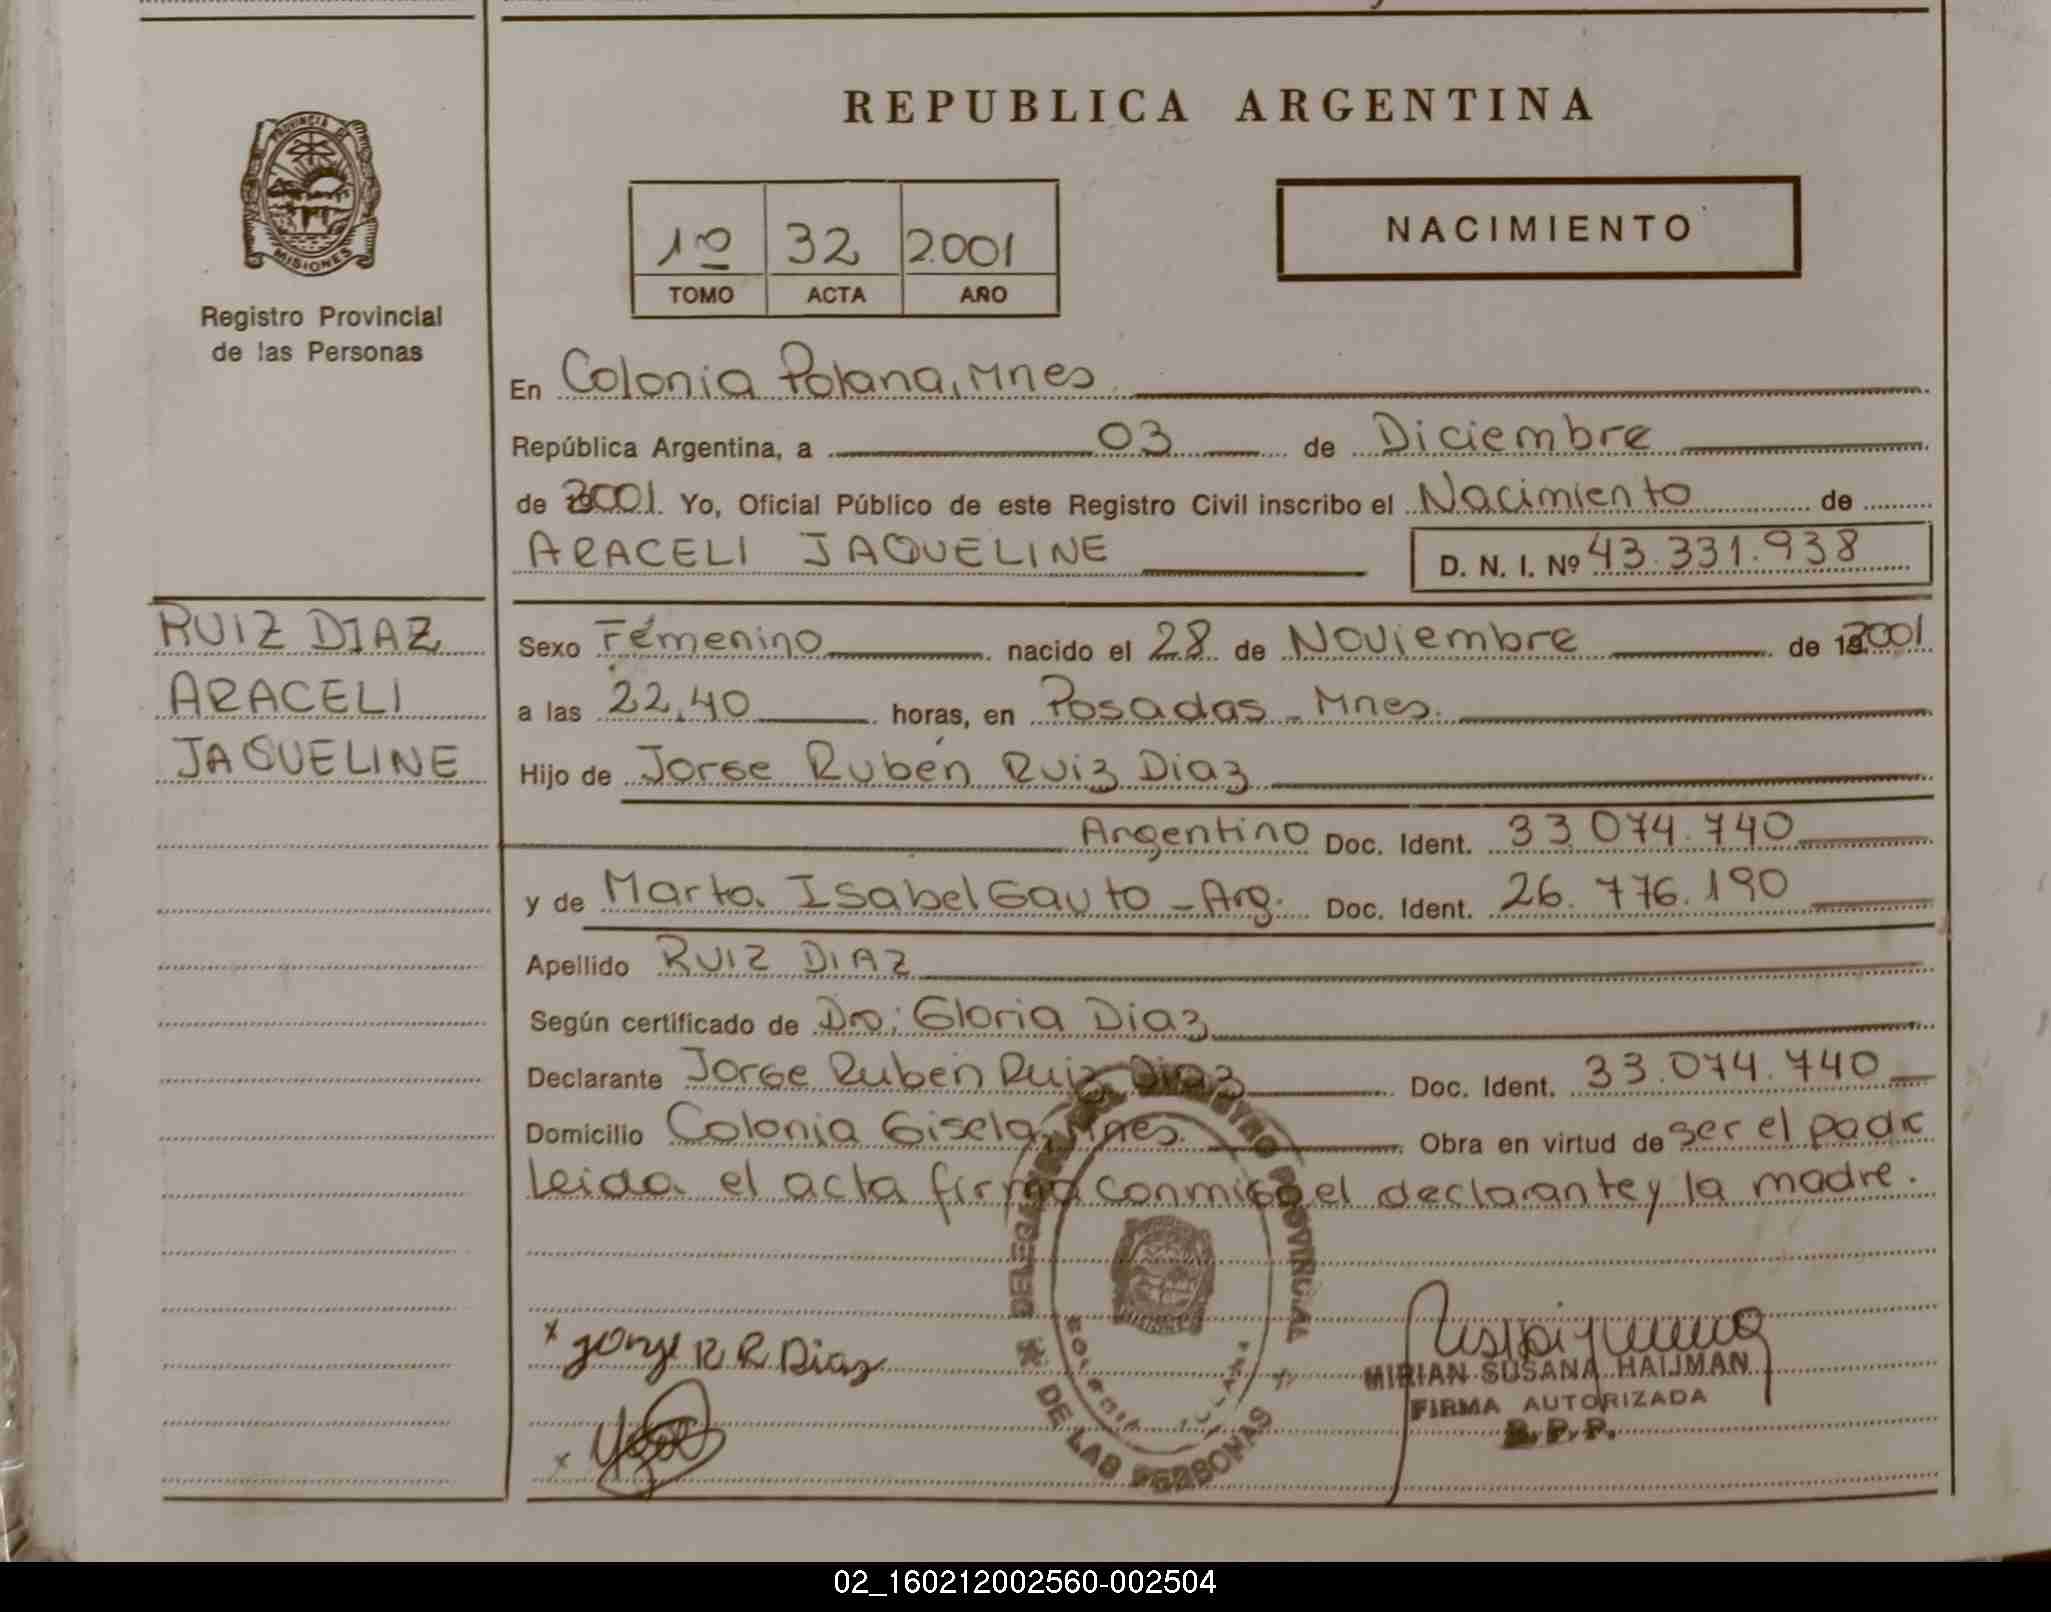 REPUBLICA ARGENTINA
PROVINCIA DE
MISIONES
Registro Provincial
de las Personas
1º 32 2001
TOMO ACTA AÑO
NACIMIENTO
En Colonia Polana, Mnes
República Argentina, a 03 de Diciembre
de 2001. Yo, Oficial Público de este Registro Civil inscribo el Nacimiento de
ARACELI JAQUELINE D. N. I. Nº 43.331.938
RUIZ DIAZ
ARACELI
JAQUELINE
Sexo Femenino nacido el 28 de Noviembre de 2001
a las 22,40 horas, en Posadas - Mnes.
Hijo de Jorge Rubén Ruiz Diaz
Argentino Doc. Ident. 33.074.740
y de Marta Isabel Gauto - Arg. Doc. Ident. 26.776.190
Apellido RUIZ DIAZ
Según certificado de Dra: Gloria Diaz
Declarante Jorge Ruben Ruiz Diaz Doc. Ident. 33.074.740
Domicilio Colonia Gisela, Mnes. Obra en virtud de ser el padre
Leida el acta firma conmigo el declarante y la madre.
x Jorge R R Diaz
x
REGISTRO PROVINCIAL
DE LAS PERSONAS
MIRIAN SUSANA HAIJMAN
FIRMA AUTORIZADA
R. P. P.
02_160212002560-002504